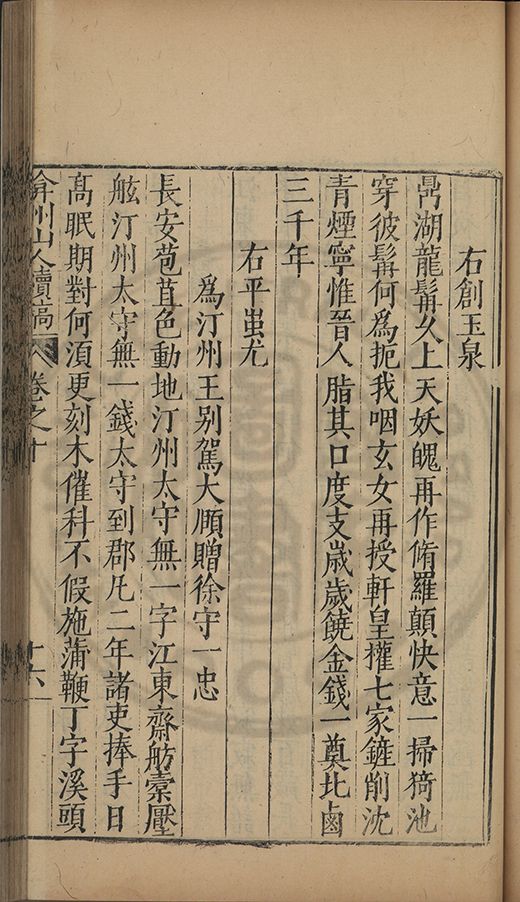 右創玉泉
鼎湖龍髯久上天妖魄再作脩羅顛快意一掃猗池
穿彼髯何為扼我咽玄女再授軒皇權七家鏟削沈
青煙寧惟晉人脂其口度支歲歲饒金錢一奠比鹵
三千年
右平蚩尤
為汀州王別駕大頋贈徐守一忠
長安苞苴色動地汀州太守無一字江東齋舫槖壓
舷汀州太守無一錢太守到郡凡二年諸吏捧手日
髙眠期對何須更刻木催科不假施蒲鞭丁字溪頭
弇州山人續稿 卷之十 十六